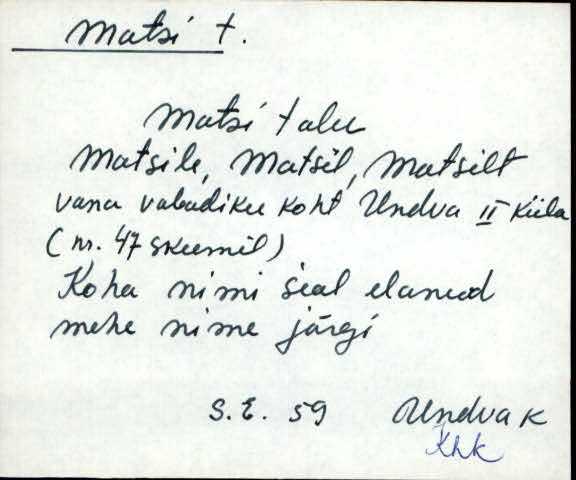 Matsi t.
Matsi talu
Matsile, Matsil, Matsilt
vana vabadiku koht Undva II küla
(nr. 47 skeemil)
Koha nimi seal elanud
mehe nime järgi
S. E. 59 Undva k
Khk